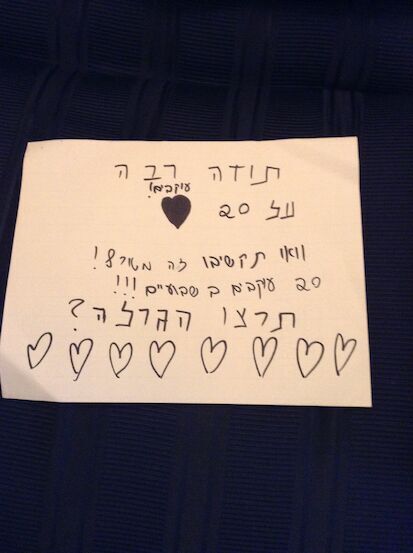 תודה רבה
עוקבם!
על 20
וואי תקשיבו זה מטורף!
20 עיקבם ב שבועיים!!!
תרצו הגרלה?